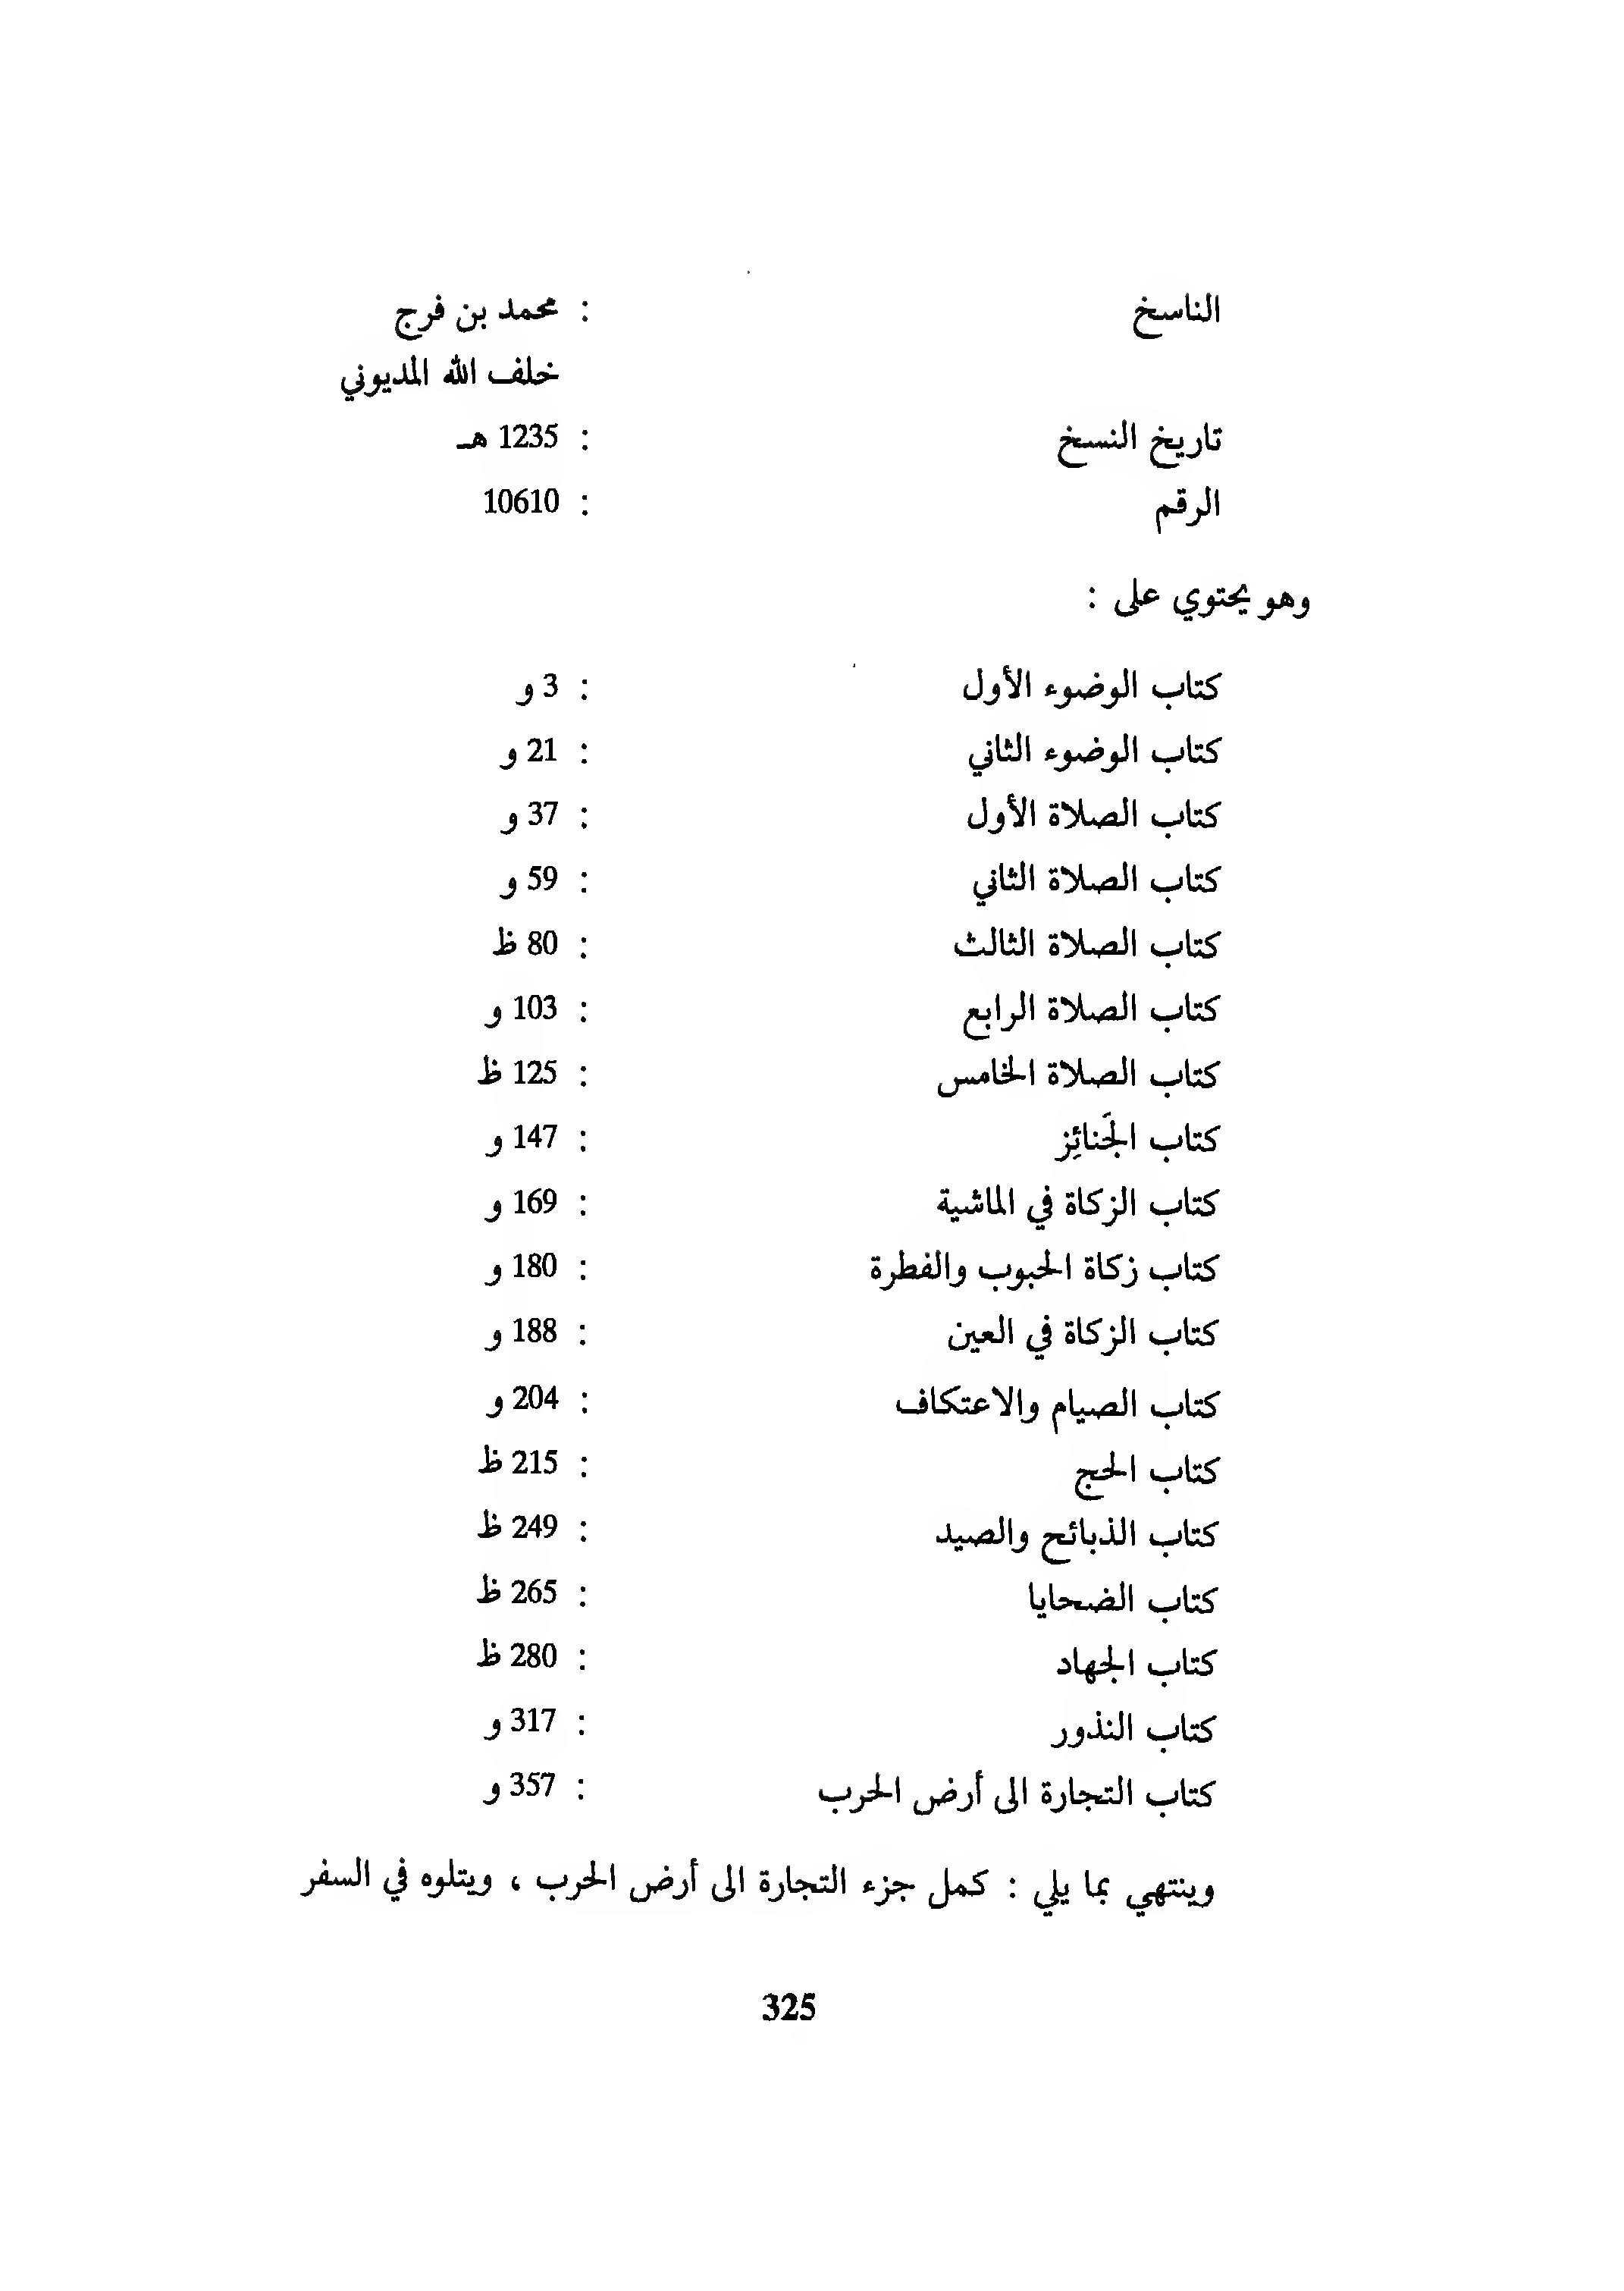 الناسخ : محمد بن فرج
خلف الله المديوني
تاريخ النسخ : 1235 هـ
الرقم : 10610
وهو يحتوي على :
كتاب الوضوء الأول : 3 و
كتاب الوضوء الثاني : 21 و
كتاب الصلاة الأول : 37 و
كتاب الصلاة الثاني : 59 و
كتاب الصلاة الثالث : 80 ظ
كتاب الصلاة الرابع : 103 و
كتاب الصلاة الخامس : 125 ظ
كتاب الجَنائِز : 147 و
كتاب الزكاة في الماشية : 169 و
كتاب زكاة الحبوب والفطرة : 180 و
كتاب الزكاة في العين : 188 و
كتاب الصيام والاعتكاف : 204 و
كتاب الحج : 215 ظ
كتاب الذبائح والصيد : 249 ظ
كتاب الضحايا : 265 ظ
كتاب الجهاد : 280 ظ
كتاب النذور : 317 و
كتاب التجارة الى أرض الحرب : 357 و
وينتهي بما يلي : كمل جزء التجارة الى أرض الحرب ، ويتلوه في السفر
325